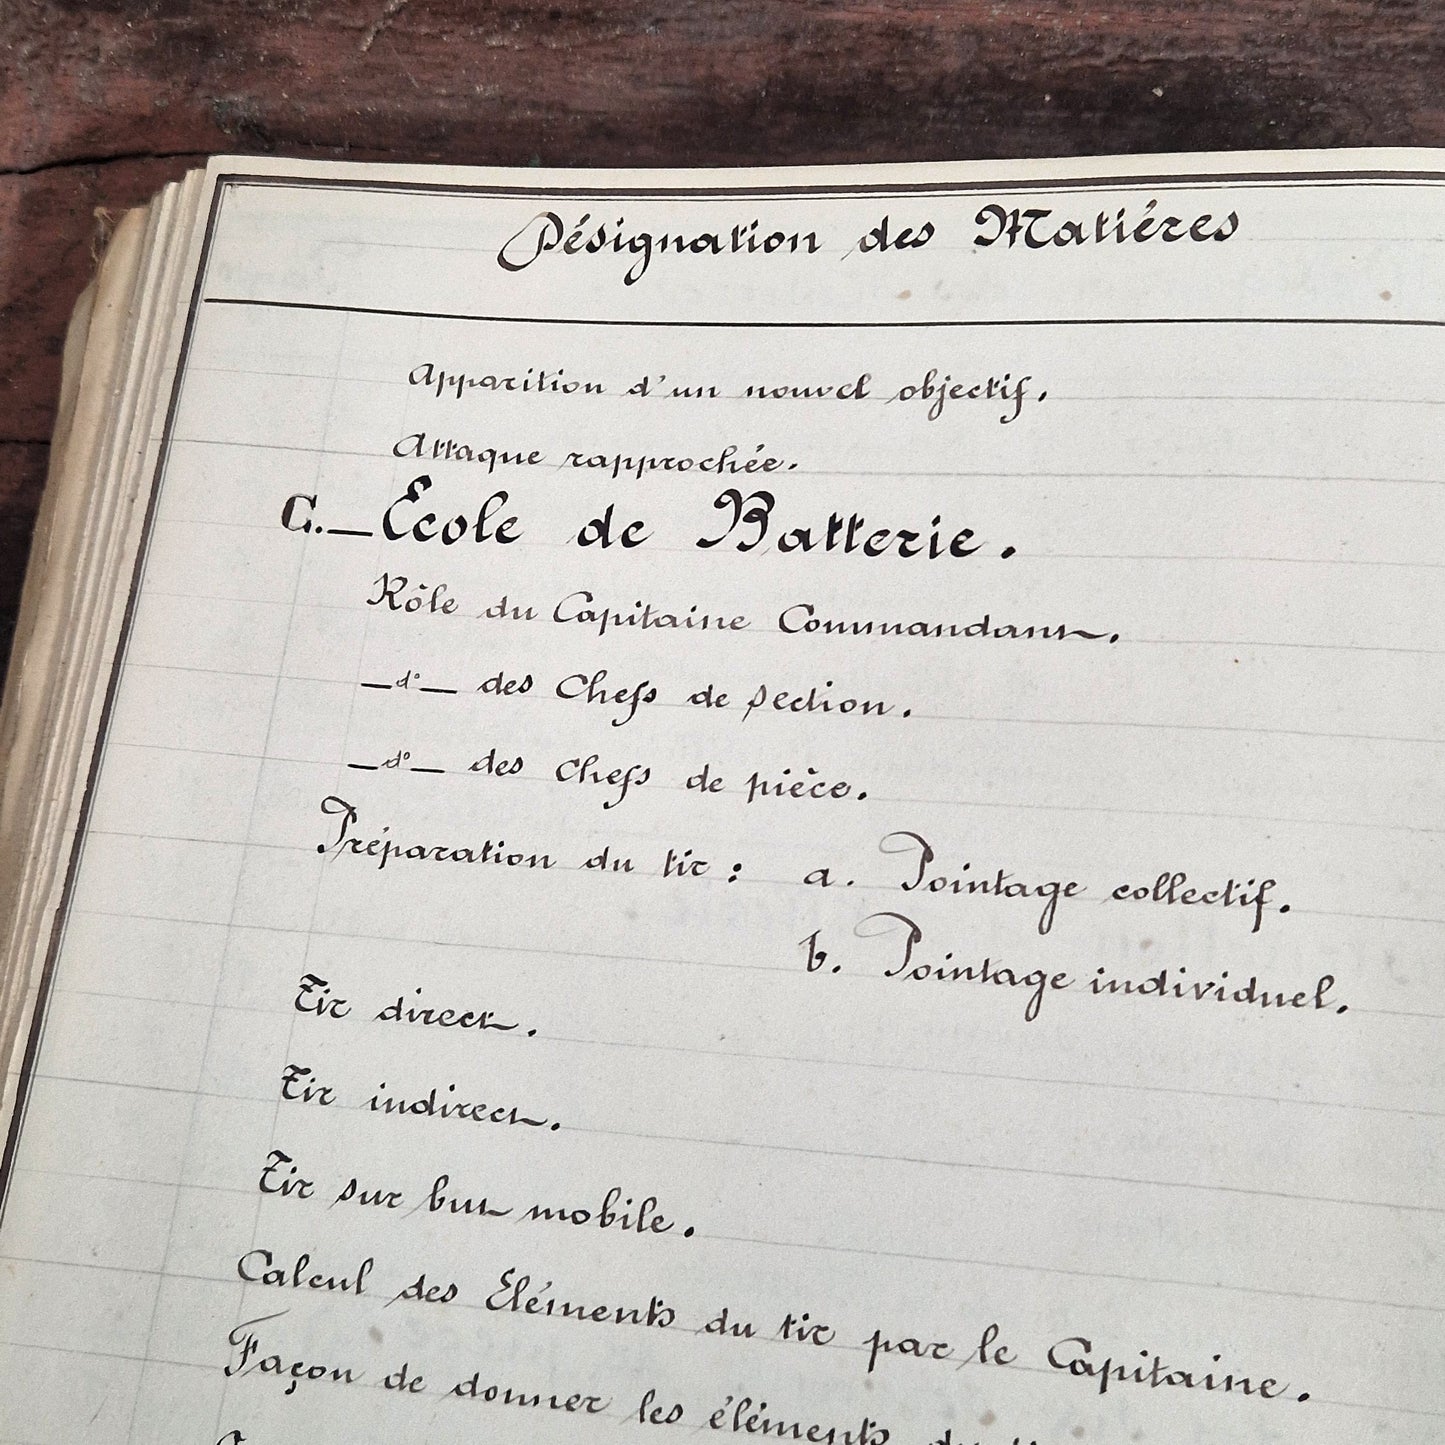 Désignation des Matières
Apparition d'un nouvel objectif.
Attaque rapprochée.
C. — École de Batterie.
Rôle du Capitaine Commandant.
— d° — des Chefs de section.
— d° — des chefs de pièce.
Préparation du tir : a. Pointage collectif.
b. Pointage individuel.
Tir direct.
Tir indirect.
Tir sur but mobile.
Calcul des Éléments du tir par le Capitaine.
Façon de donner les éléments du